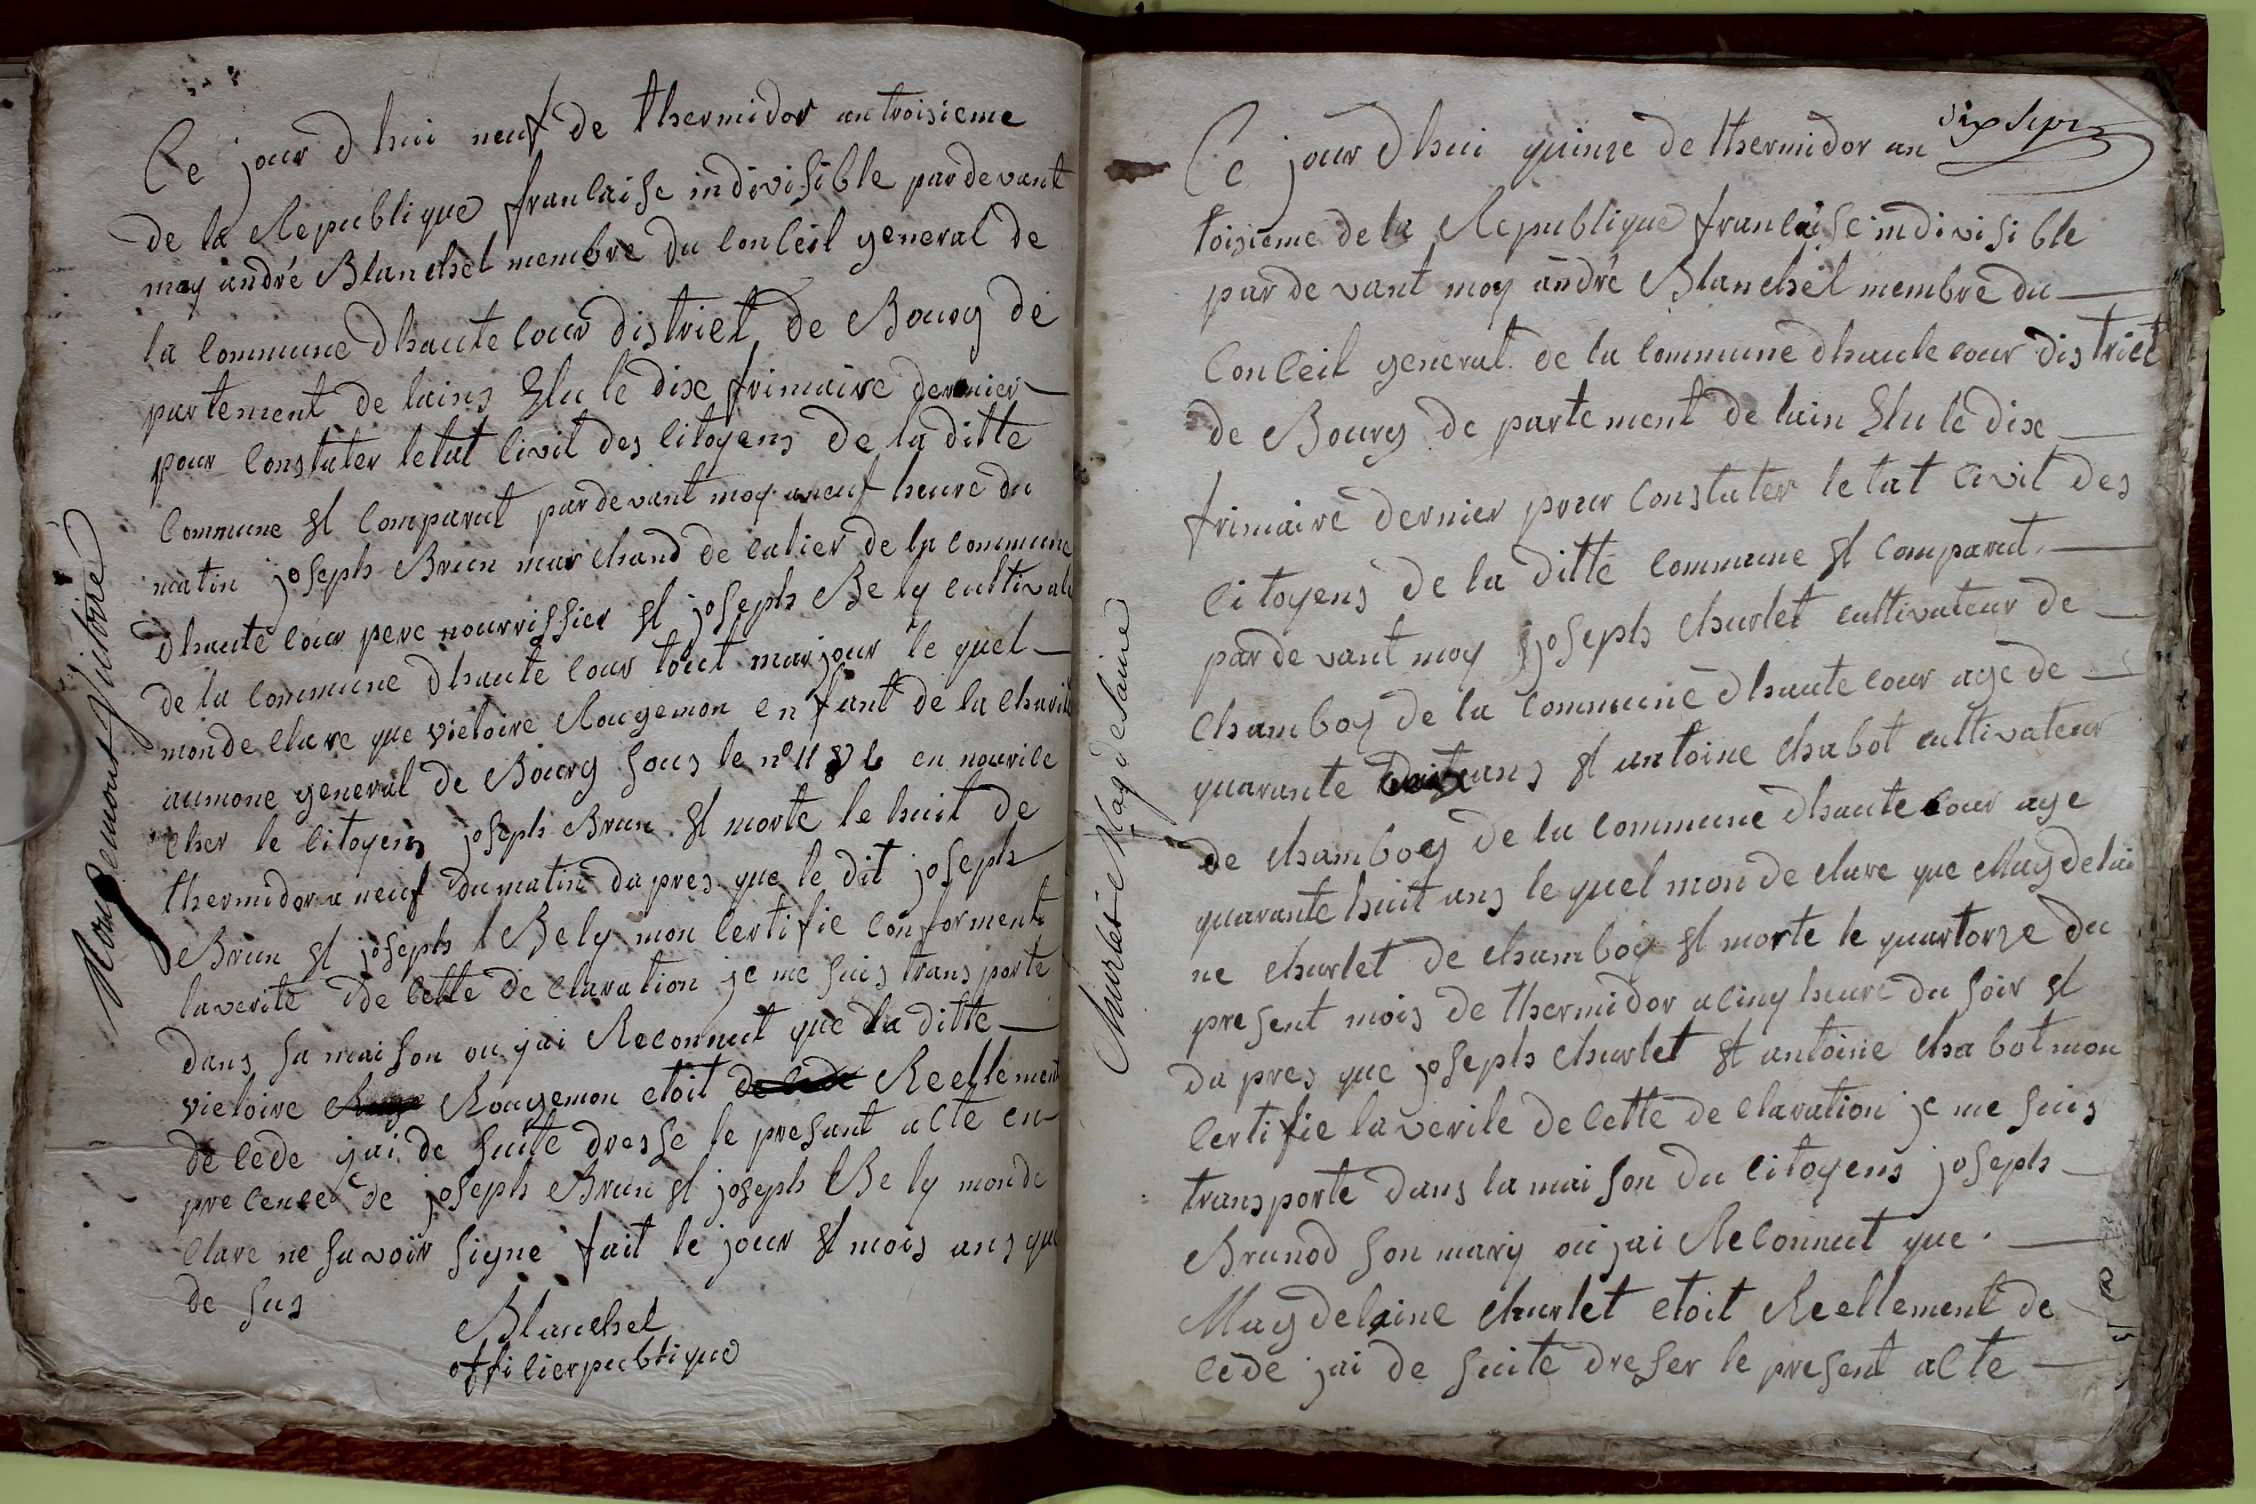 Ce jour d hui neuf de thermidor an troisieme
de la Republique francaise indivisible par devant
moy andré Blanchet membre du conceil general de
la commune dhautecour district de Bourg de
partement de lains Elu le dixe frimaire dernier
pour constater letat civil des citoyens de la ditte
commune et comparut par devant moy a neuf heure du
matin joseph Brun marchand de calier de la commune
dhautecour pere nourrissier et joseph Bely cultivate
de la commune dhautecour tout marjour le quel
mon de clare que victoire Rougemon enfant de la charité
aumone general de Bourg sous le n° en nourice
cher le citoyens joseph Brun et morte le huit de
thermidor a neuf du matin da pres que le dit joseph
Brun et joseph Bely mon certifie conforment
la verité de cette de claration je me suis transporté
dans sa maison ou jai Reconnut que la ditte
victoire Rougemon etoit Reellement
de cede jai de suite dresse le presant acte en
precence de joseph Brun et joseph Bely mon de
clare ne savoir signe fait le jour et mois ans que
de sus
Blanchet
officier publique
Rougemont Victoire
dix sept
Ce jour d hui quinze de thermidor an
toisieme de la Republique francaise indivisible
par de vant moy andré Blanchet membre du
conceil general de la commune dhautecour district
de Bourg de partement de lain Elu le dixe
frimaire dernier pour constater letat civil des
citoyens de la ditte commune et comparut
par de vant moy joseph churlet cultivateur de
chamboy de la commune dhautecour age de
quarante ans et antoine chabot cultivateur
de chamboy de la commune dhautecour age
quarante huit ans le quel mon de clare que Magdelai
ne churlet de chamboy et morte le quartorze du
present mois de thermidor a cinq heure du soir et
da pres que joseph churlet et antoine chabot mon
certifie la verite de cette de claration je me suis
transporte dans la maison du citoyens joseph
Brunod son mary ou jai Reconnut que
Magdelaine churlet etoit Reellement de
cede jai de suite dreser le present acte
churlet Magdelaine